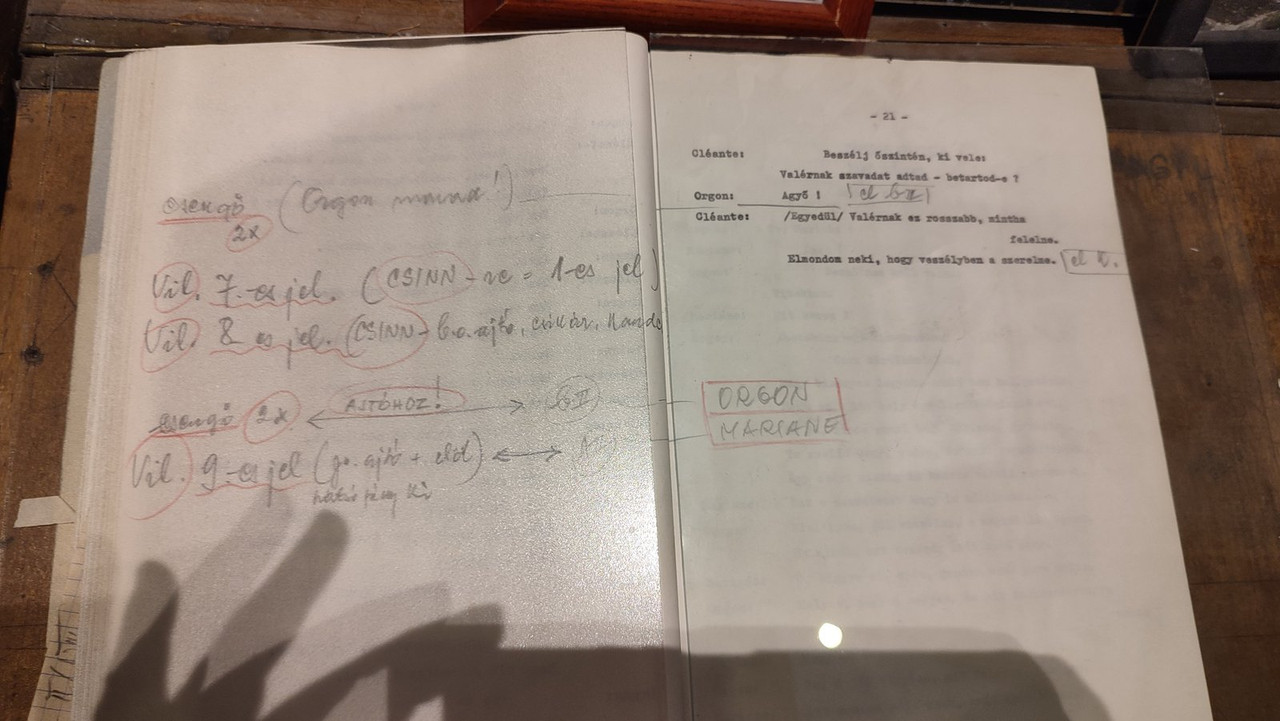 csengő (Orgon marad!)
2x
Vil. 7.-es jel. (CSINN-re = 1-es jel)
Vil. 8 es jel. (CSINN - b.o. ajtó, csillár,
csengő 2x AJTÓHOZ!
Vil. 9.-es jel (jo. ajtó + elöl)
- 21 -
Cléante: Beszélj őszintén, ki vele:
Valérnak szavadat adtad - betartod-e ?
Orgon: Agyő !
Cléante: /Egyedül/ Valérnak ez rosszabb, mintha
felelne.
Elmondom neki, hogy veszélyben a szerelme.
ORGON
MARIANE